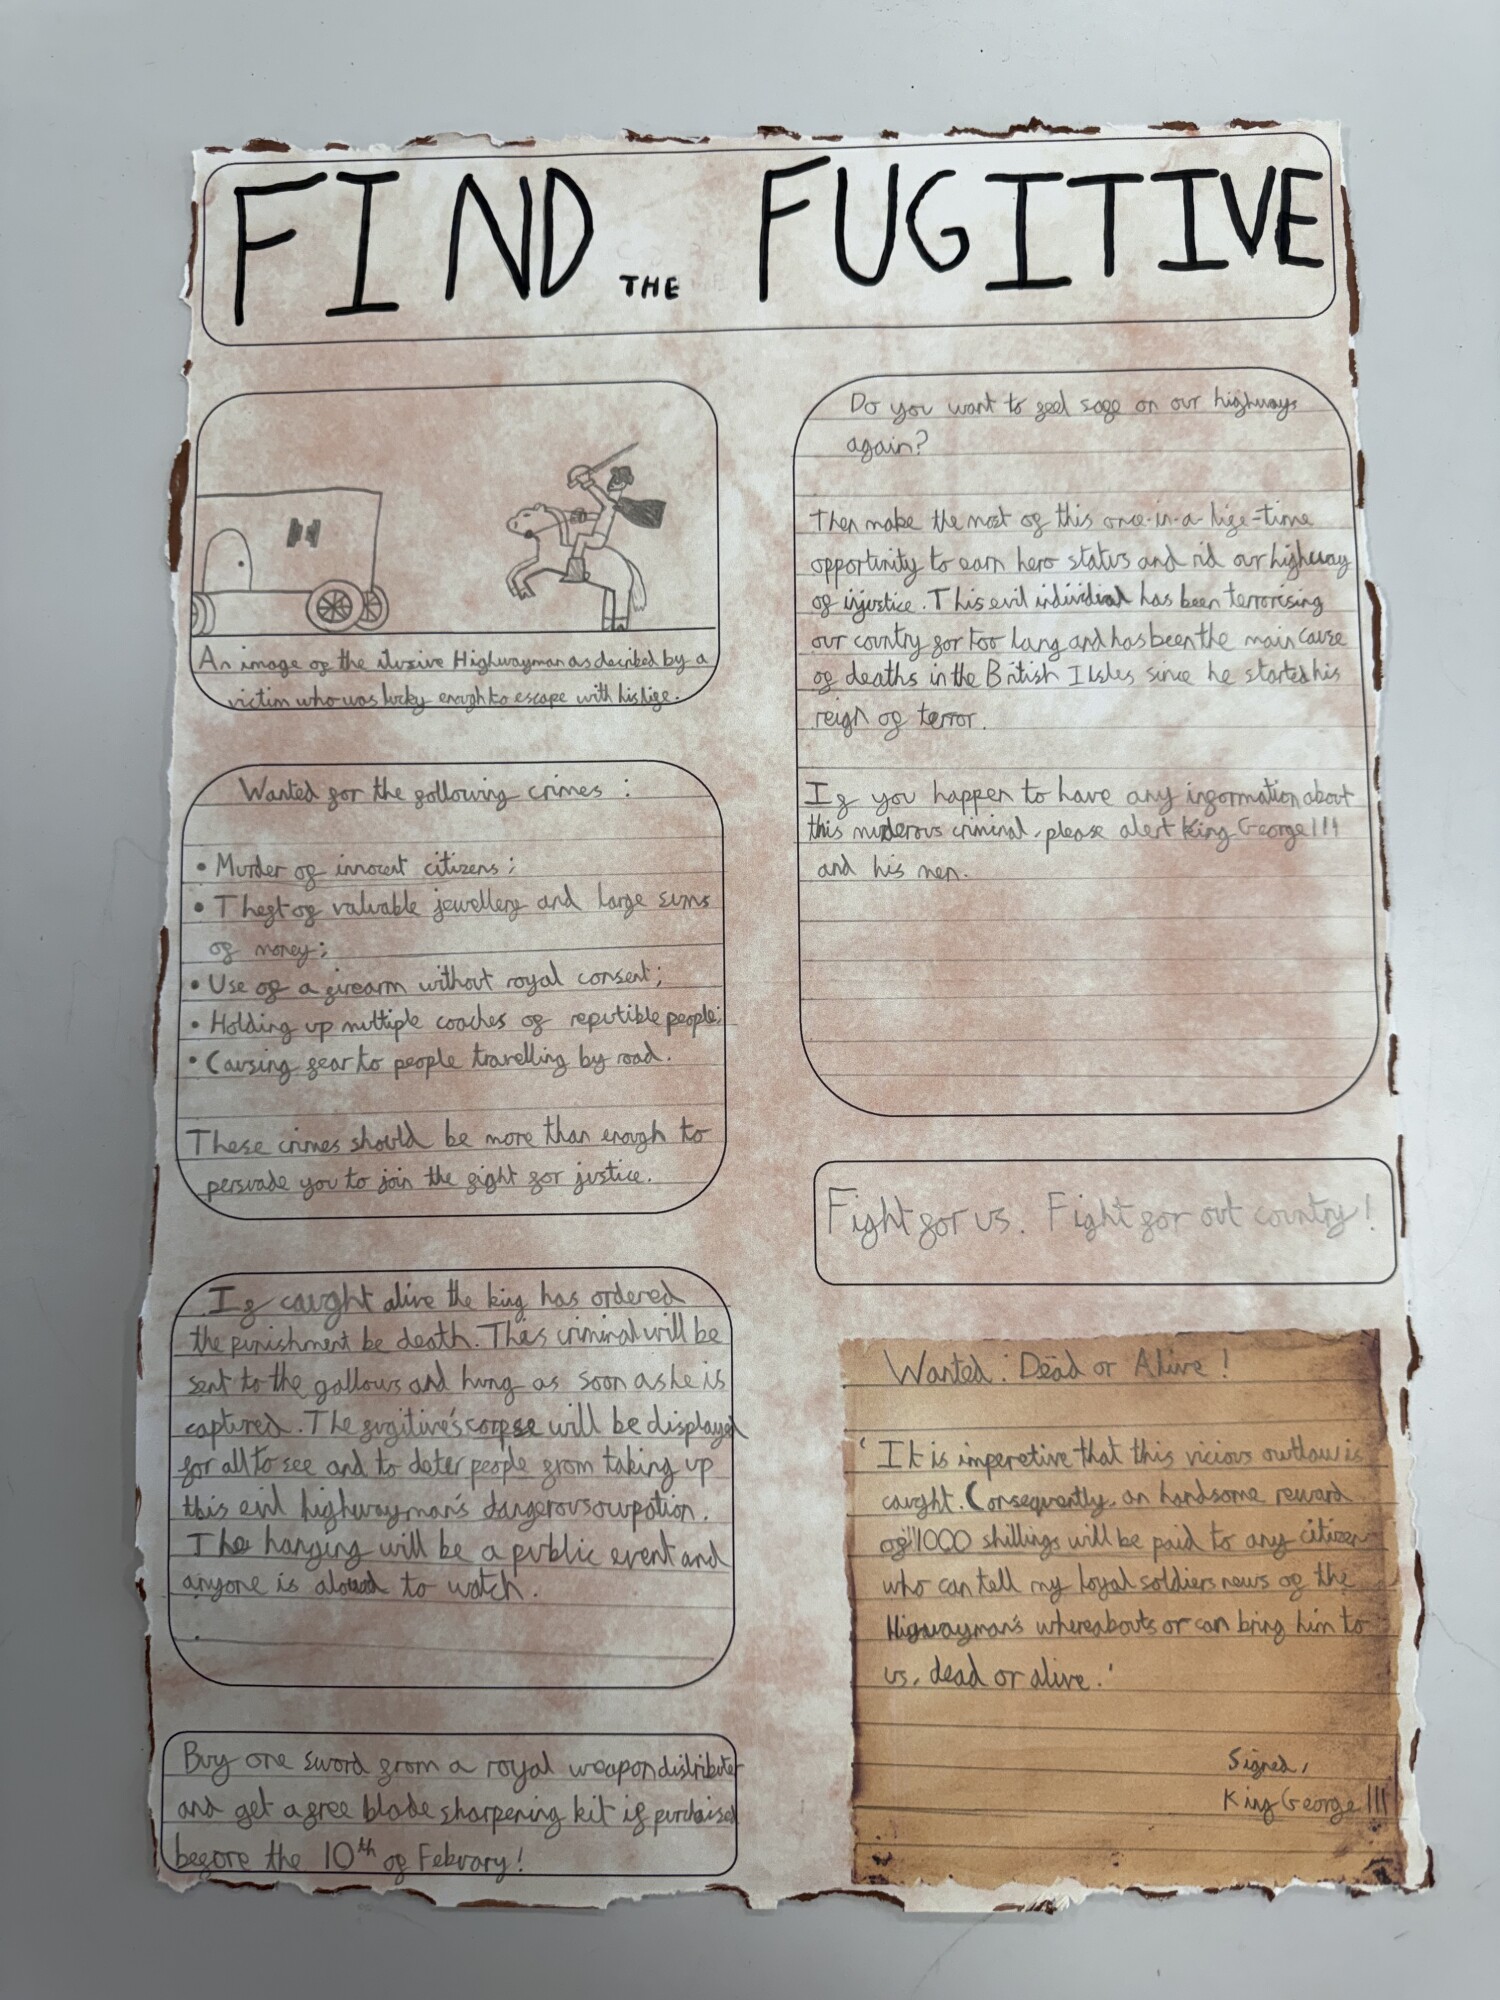 FIND THE FUGITIVE
An image of the ilusive Highwayman as decribed by a
victim who was lucky enough to escape with his life.
Wanted for the following crimes :
• Murder of innocent citizens;
• Theft of valuable jewellery and large sums
of money;
• Use of a firearm without royal consent;
• Holding up multiple coaches of reputible people;
• Causing fear to people travelling by road.
These crimes should be more than enough to
persuade you to join the fight for justice.
If caught alive the king has ordered
the punishment be death. This criminal will be
sent to the gallows and hung as soon as he is
captured. The fugitive's corpse will be displayed
for all to see and to deter people from taking up
this evil highwayman's dangerous ocupation.
The hanging will be a public event and
anyone is alowed to watch.
Buy one sword from a royal weapon distributer
and get a free blade sharpening kit if purchased
before the 10th of Febuary!
Do you want to feel safe on our highways
again?
Then make the most of this once-in-a-life-time
opportunity to earn hero status and rid our highway
of injustice. This evil individual has been terrorising
our country for too long and has been the main cause
of deaths in the British Isles since he started his
reign of terror.
If you happen to have any information about
this murderous criminal, please alert King George III
and his men.
Fight for us. Fight for out country!
Wanted: Dead or Alive!
'It is imperetive that this vicious outlaw is
caught. Consequently, an handsome reward
of 1000 shillings will be paid to any citizen
who can tell my loyal soldiers news of the
Higwayman's whereabouts or can bring him to
us, dead or alive.'
Signed,
King George III